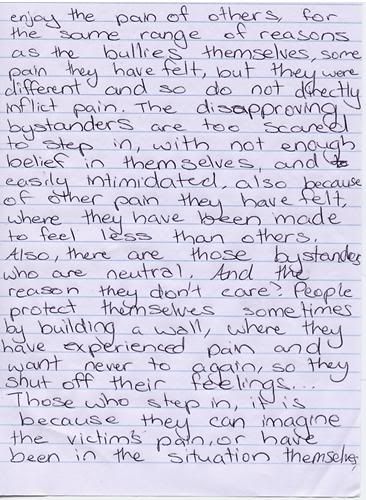 enjoy the pain of others, for
the same range of reasons
as the bullies themselves, some
pain they have felt, but they were
different and so do not directly
inflict pain. The disapproving
bystanders are too scared
to step in, with not enough
belief in themselves, and
easily intimidated, also because
of other pain they have felt,
where they have been made
to feel less than others.
Also, there are those bystanders
who are neutral. And the
reason they don't care? People
protect themselves sometimes
by building a wall, where they
have experienced pain and
want never to again, so they
shut off their feelings...
Those who step in, it is
because they can imagine
the victim's pain, or have
been in the situation themselves,